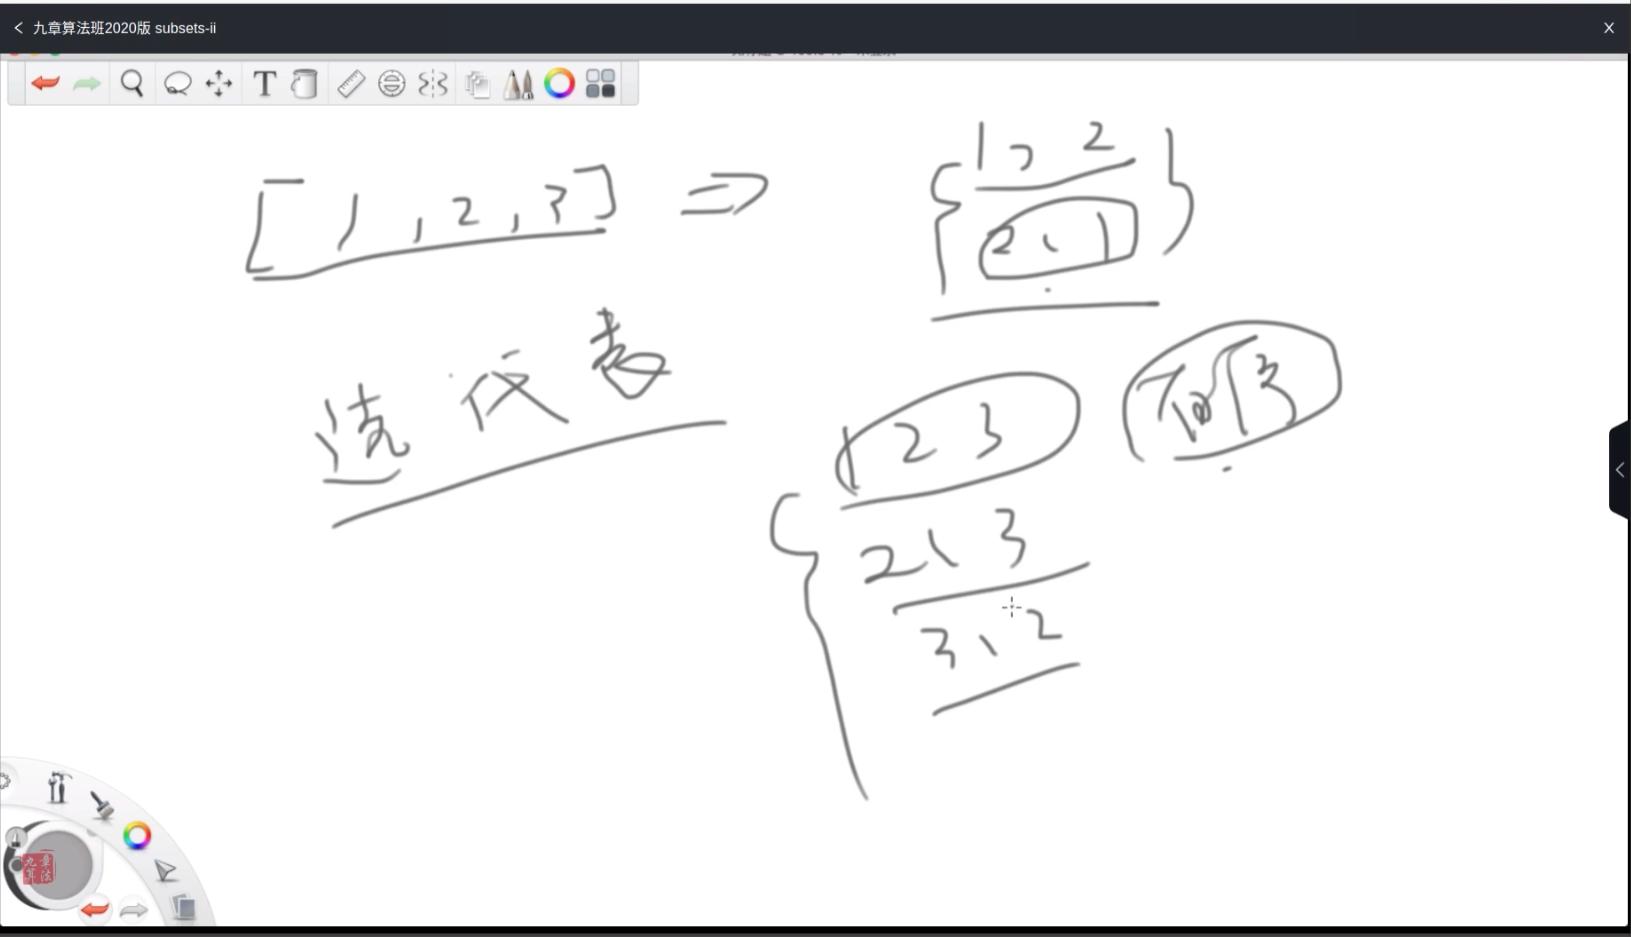 九章算法班2020版 subsets-ii
X
T
[1,2,3] ⇒ {1, 2
2, 1}
选代表
1 2 3
有序
{2、3
3、2
九章算法